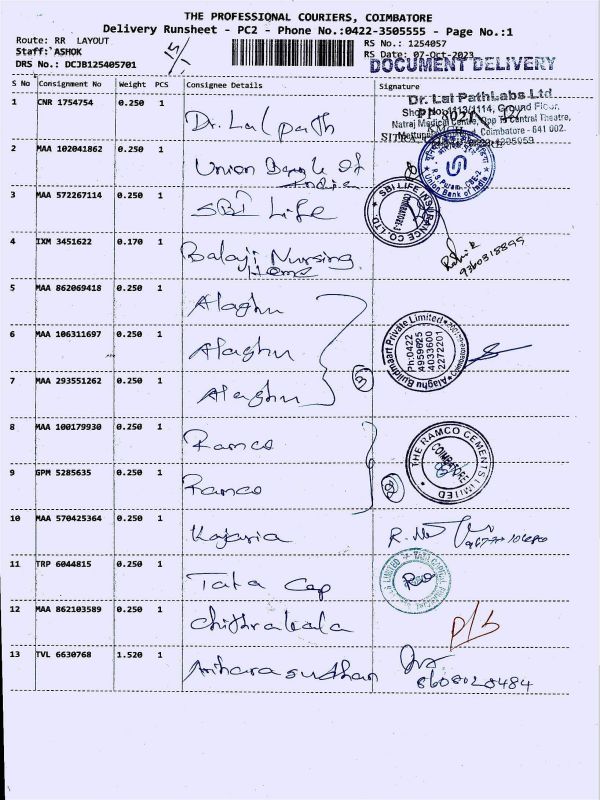 THE PROFESSIONAL COURIERS, COIMBATORE
Delivery Runsheet - PC2 - Phone No.:0422-3505555 - Page No.:1
Route: RR LAYOUT
Staff: ASHOK
DRS No.: DCJB125405701
RS No.: 1254057
RS Date: 07-Oct-2023
DOCUMENT DELIVERY
S No Consignment No Weight PCS Consignee Details Signature
1 CNR 1754754 0.250 1 Dr. Lal path
Dr. Lal PathLabs Ltd
Shop No. 113/1114, Ground Floor,
Natraj Medical Centre, Opp To Central Theatre,
Coimbatore - 641 002.
2 MAA 102041862 0.250 1 Union Bank of India
R.S.Puram, CBE-2
Union Bank of India
3 MAA 572267114 0.250 1 SBi Life
SBI LIFE INSURANCE CO. LTD.
COIMBATORE-3
4 IXM 3451622 0.170 1 Balaji Nursing Home
9360318895
5 MAA 862069418 0.250 1 Alaghu
6 MAA 106311697 0.250 1 Alaghu
7 MAA 293551262 0.250 1 Alaghu
3
Alaghu Buildmaart Private Limited
Coimbatore
Ph:0422
4959625
4033600
2272201
8 MAA 100179930 0.250 1 Ramco
9 GPM 5285635 0.250 1 Ramco
2
THE RAMCO CEMENTS LIMITED
COIMBATORE
10 MAA 570425364 0.250 1 Kajaria
11 TRP 6044815 0.250 1 Tata Cap
12 MAA 862103589 0.250 1 Chithrakala
D/L
13 TVL 6630768 1.520 1 Ariharasudhan
8608020484